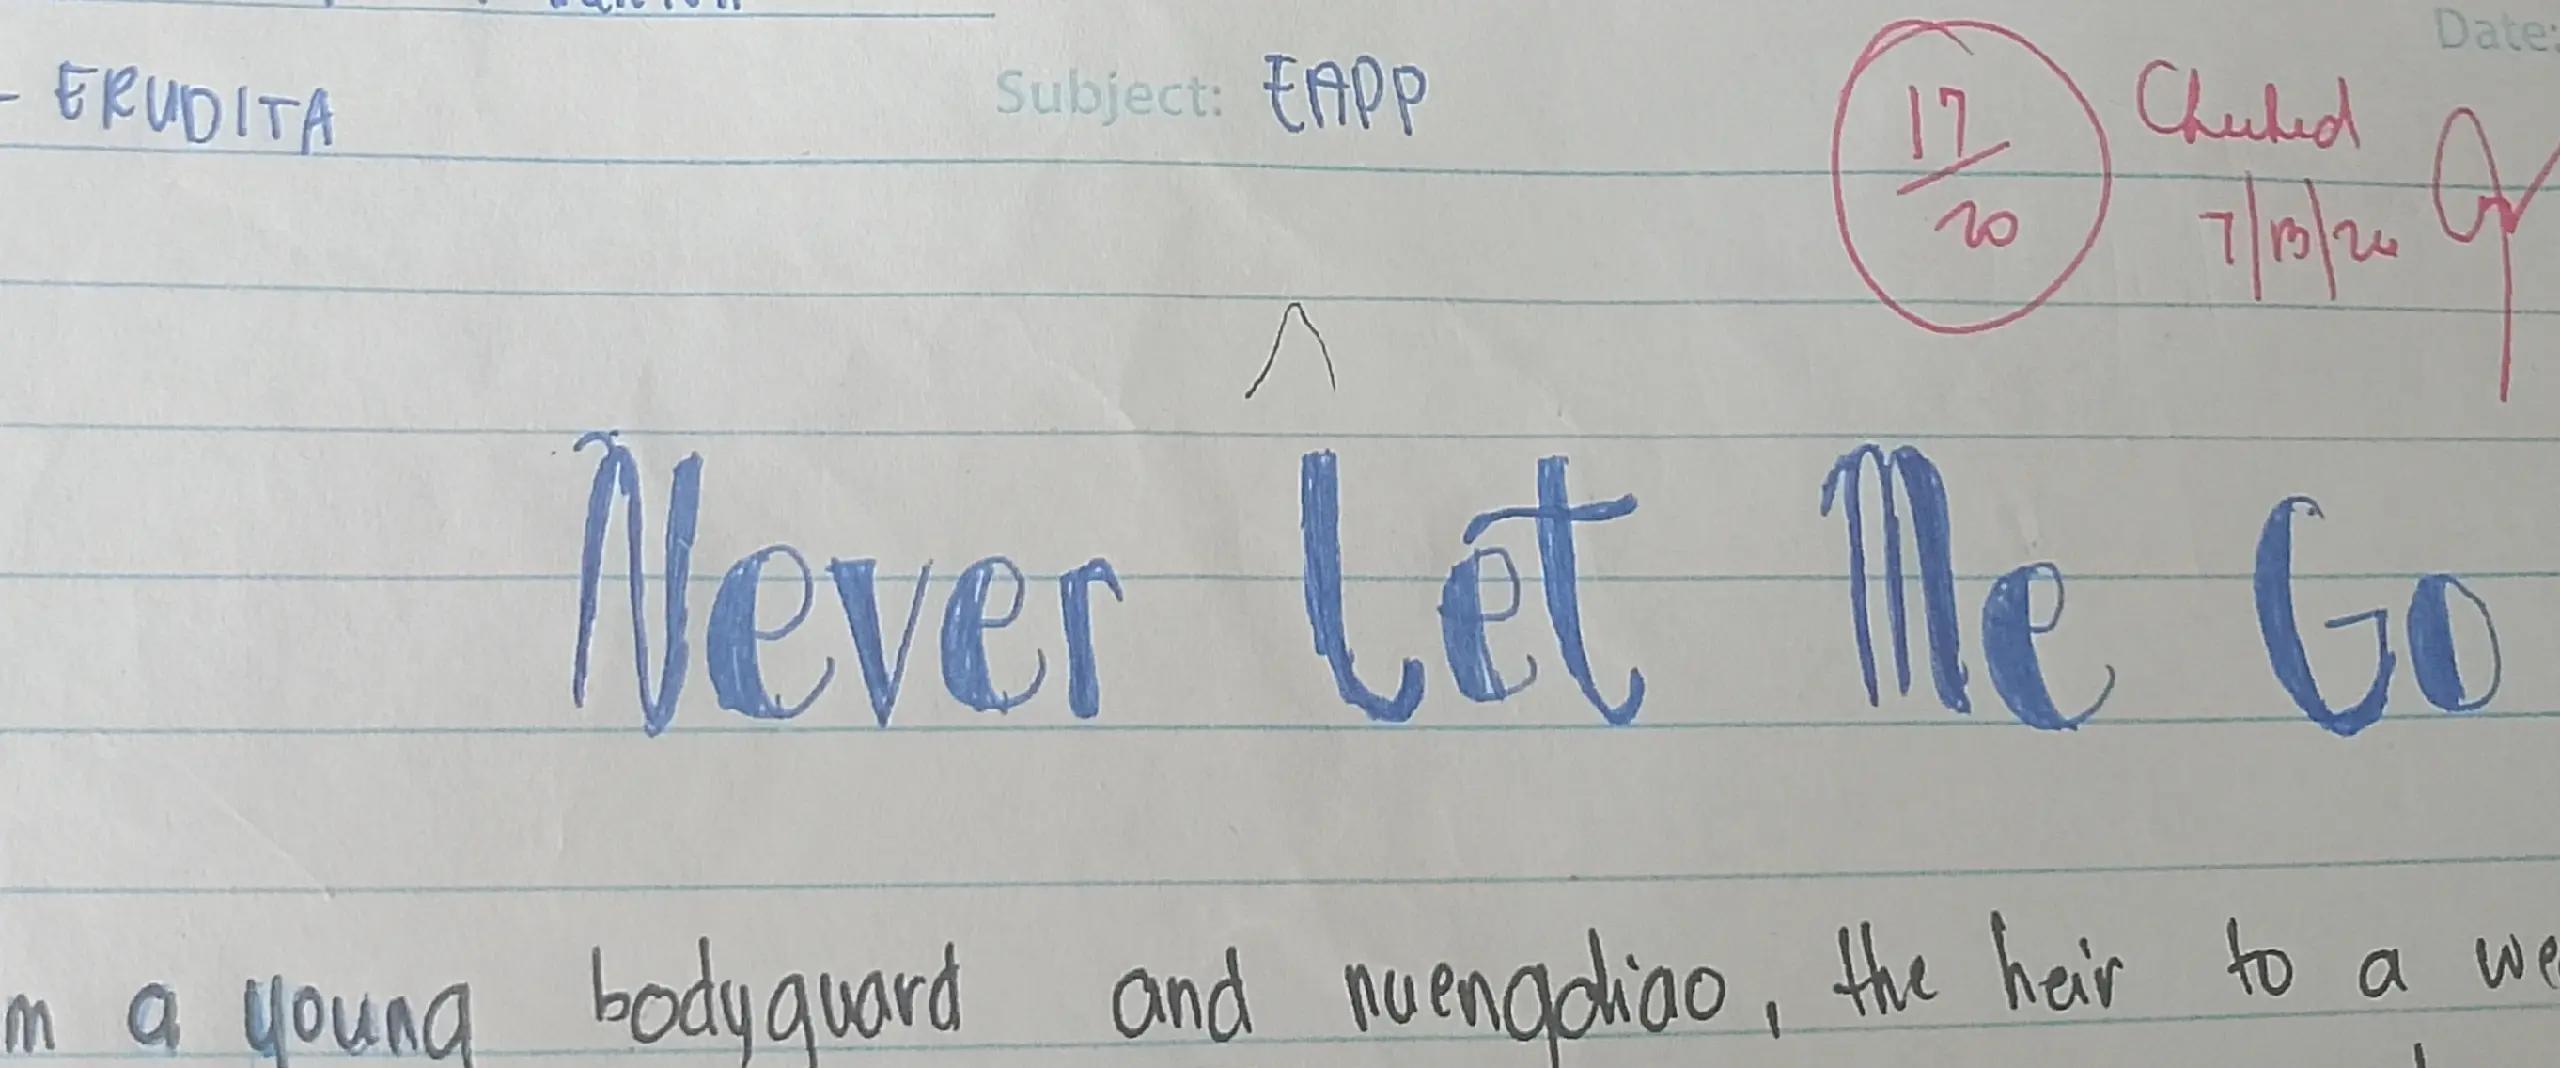 - ERUDITA
Subject: EAPP
Date:
17/20
Checked
7/13/24
Never Let Me Go
a young bodyguard and nuengdiao, the heir to a